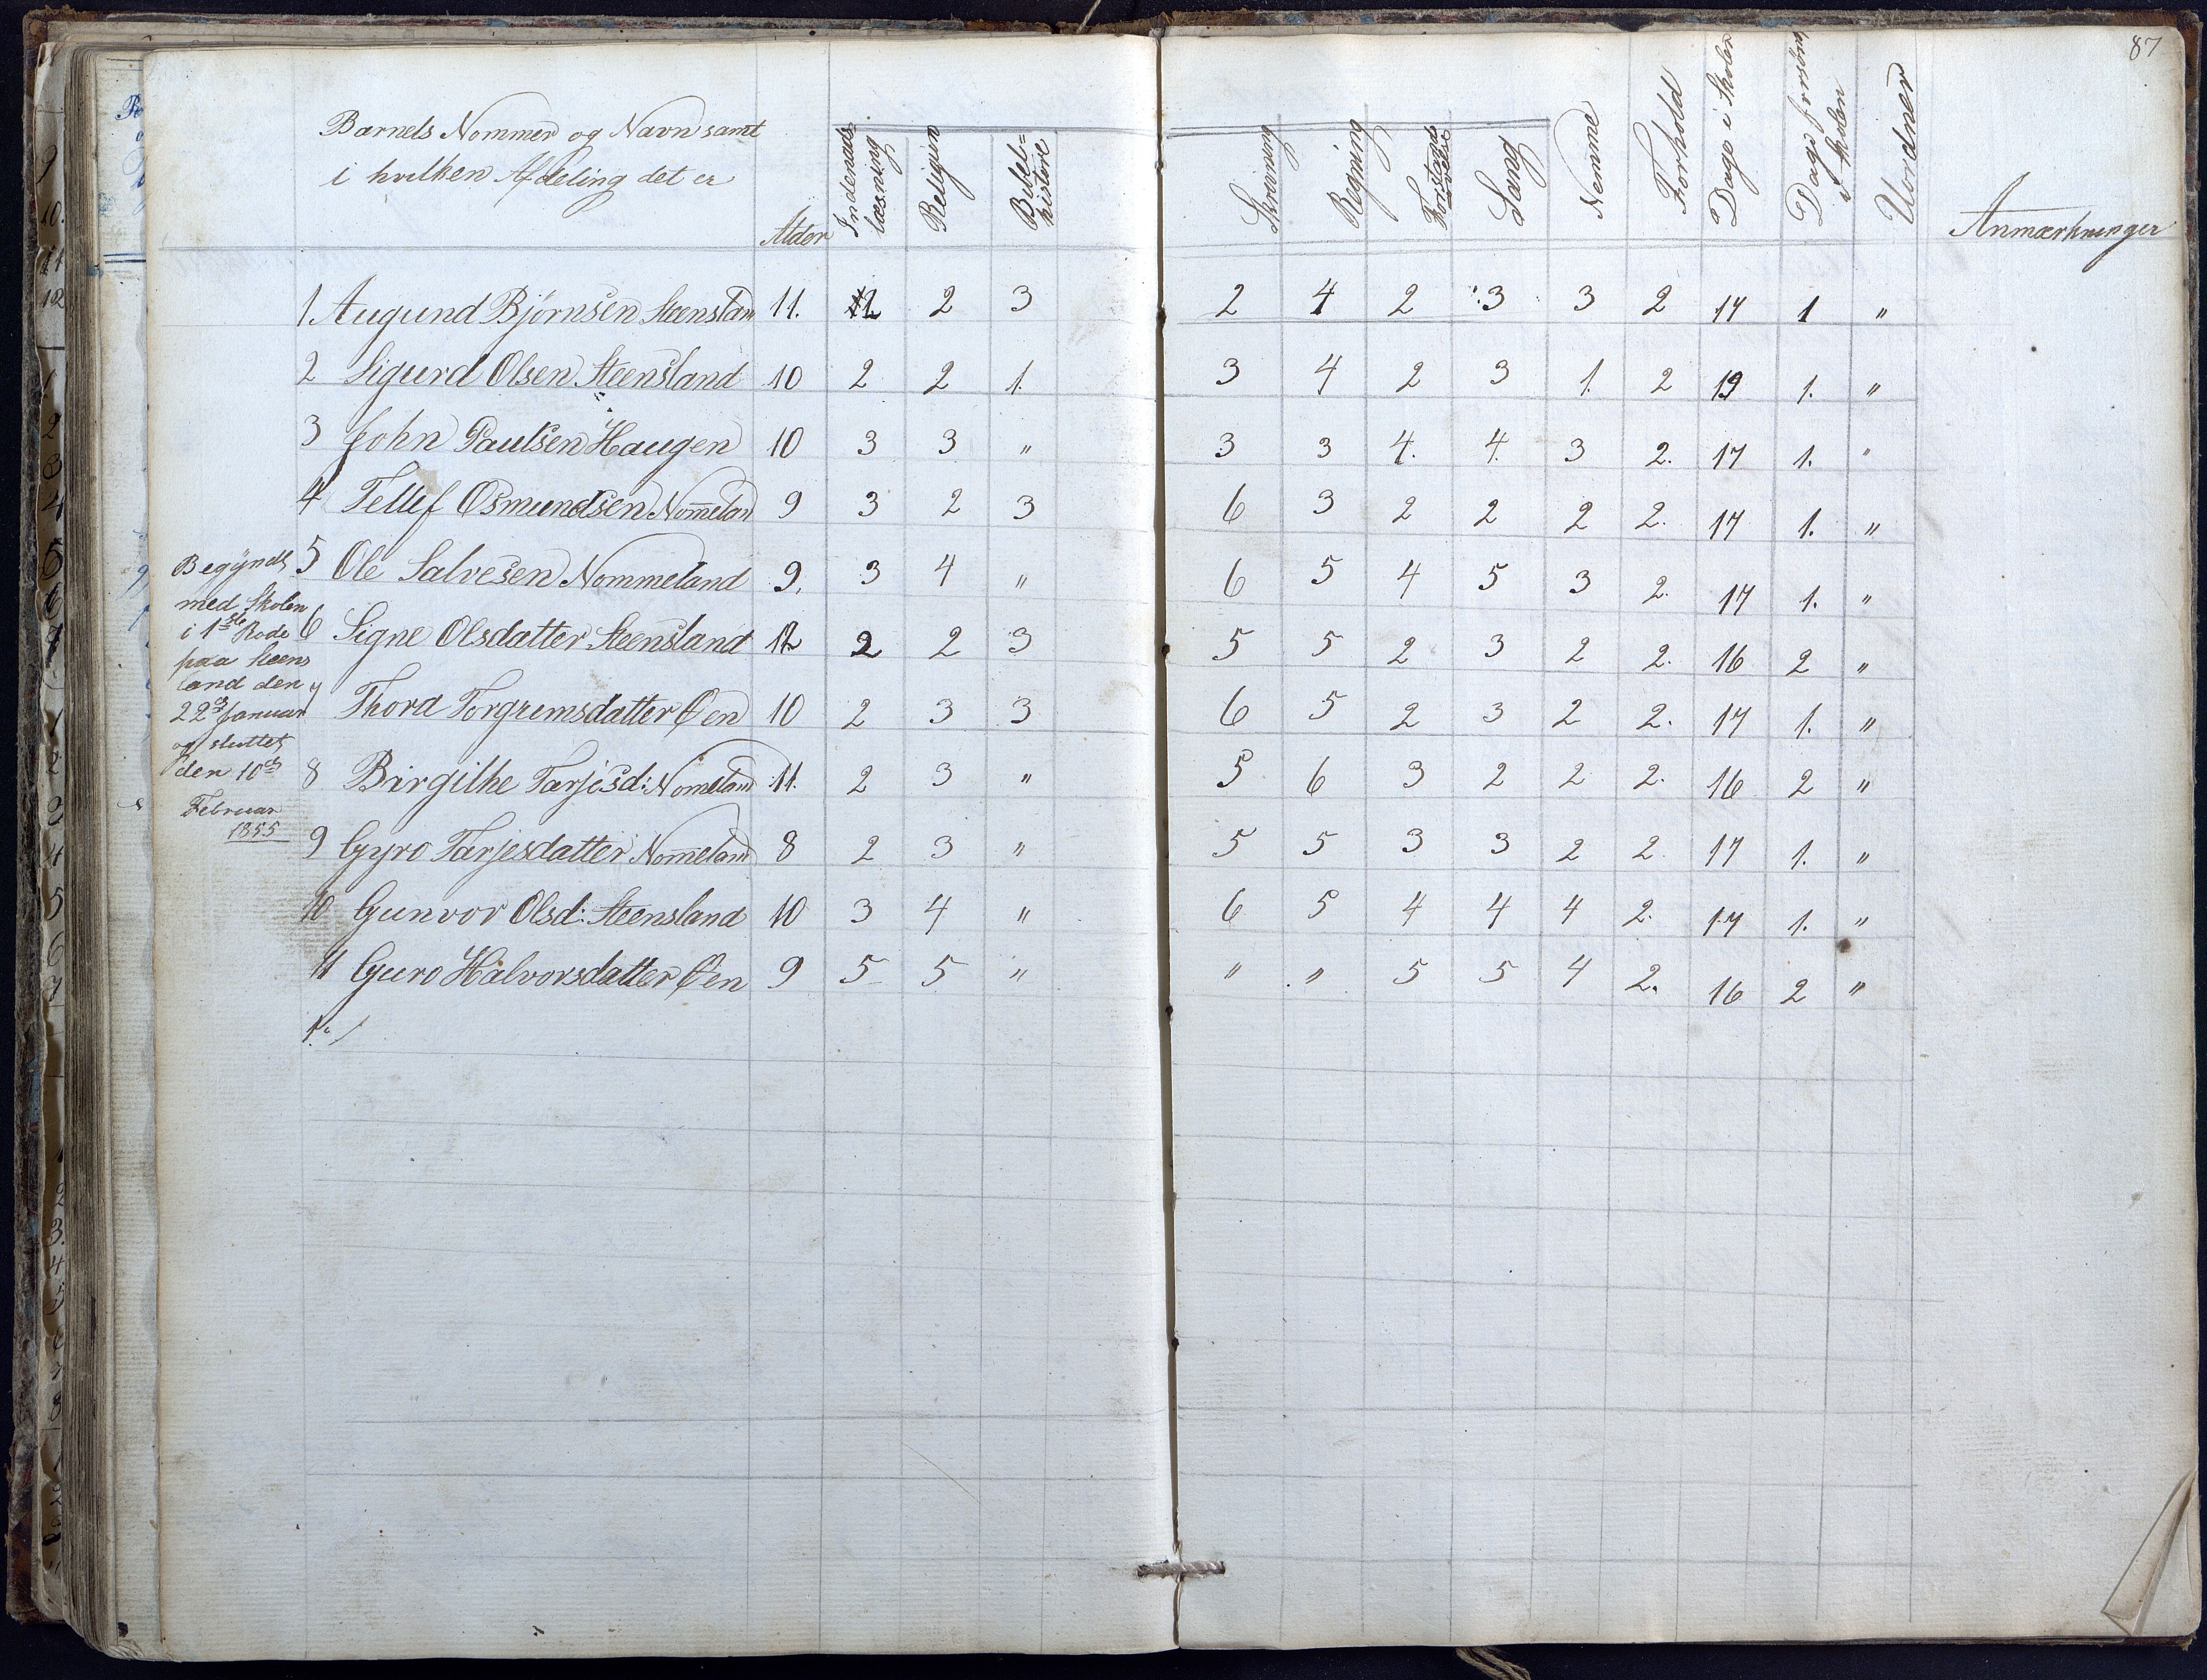 87
Barnets Nommer og Navn samt
i hvilken Afdeling det er
Alder
Indenads
læsning
Religion
Bibel=
historie
Skrivning
Regning
Forstands
øvelse
Sang
Nemme
Forhold
Dage i Skolen
Dage forsømt
i Skolen
Uordner
Anmærkninger
1 Augund Bjørnsen Steensland 11. 2 2 3 2 4 2 3 3 2 17 1 "
2 Sigurd Olsen Steensland 10 2 2 1. 3 4 2 3 1. 2 19 1. "
3 John Paulsen Haugen 10 3 3 " 3 3 4. 4. 3 2. 17 1. "
4 Tellef Osmundsen Nom̅eland 9 3 2 3 6 3 2 2 2 2. 17 1. "
5 Ole Salvesen Nommeland 9. 3 4 " 6 5 4 5 3 2. 17 1. "
6 Signe Olsdatter Steensland 12 2 2 3 5 5 2 3 2 2. 16 2 "
7 Thora Torgrimsdatter Øen 10 2 3 3 6 5 2 3 2 2. 17 1. "
8 Birgithe Tarjesd: Nom̅eland 11. 2 3 " 5 6 3 2 2 2. 16 2 "
9 Gyro Tarjesdatter Nom̅eland 8 2 3 " 5 5 3 3 2 2. 17 1. "
10 Gunvor Olsd: Steensland 10 3 4 " 6 5 4 4 4 2. 17 1. "
11 Guro Halvorsdatter Øen 9 5 5 " " " 5 5 4 2. 16 2 "
Begyndt
med Skolen
i 1ste Rode
paa Steens
land den
22d Januar
og sluttet
den 10d
Februar
1855